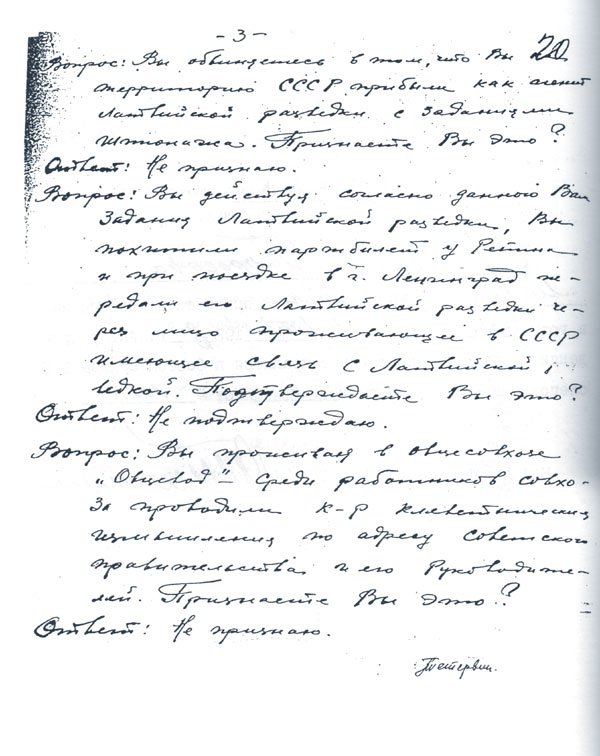 - 3 -
20
Вопрос: Вы обвиняетесь в том, что Вы
территорию СССР прибыли как агент
Латвийской разведки с заданиями
шпионажа. Признаете Вы это?
Ответ: Не признаю.
Вопрос: Вы действуя согласно данного Вам
задания Латвийской разведки, Вы
похитили партбилет у Репина
и при поездке в г. Ленинград пе-
редали его Латвийской разведки че-
рез лицо проживающее в СССР
имеющее связь с Латвийской
ведкой. Подтверждаете Вы это?
Ответ: Не подтверждаю.
Вопрос: Вы проживая в овцесовхозе
„Овцевод" – среди работников совхо-
за проводили к-р клеветнические
измышления по адресу Советского
правительства и его Руководите-
лей. Признаете Вы это?
Ответ: Не признаю.